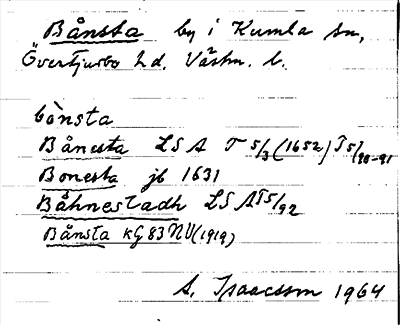 Bånsta by i Kumla sn,
Övertjurbo hd. Västm. l.
bònsta
Bånesta LSA T 5/3 (1652) T5/90-91
Bonesta jb 1631
Båhnestadh LSA T5/92
Bånsta KG 83 NV (1919)
A. Isaacsson 1964